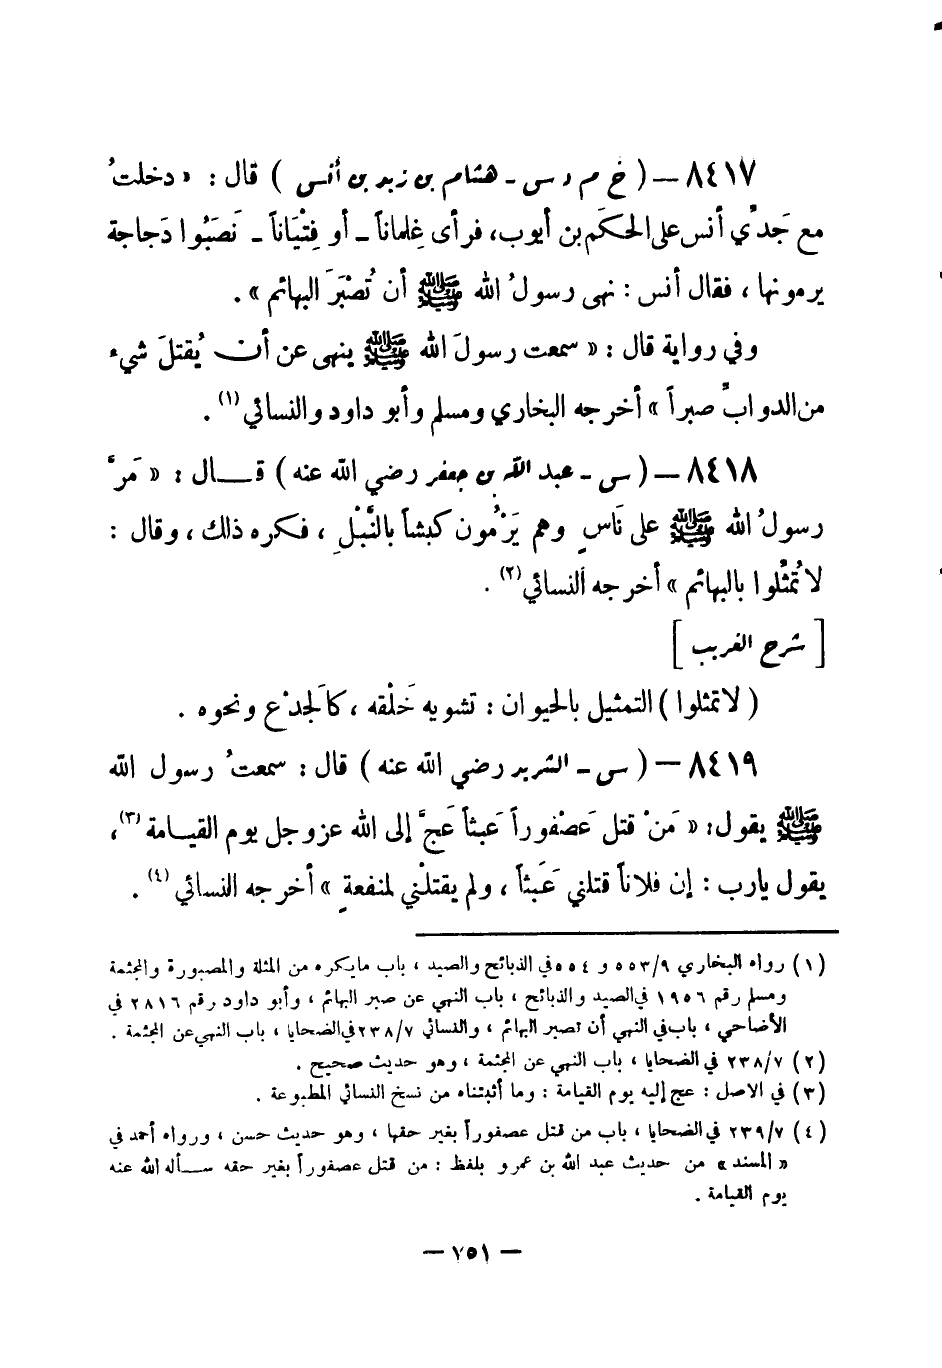 ٨٤١٧ – ( خ م د س - هشام بن زيد بن أنس ) قال : « دخلتُ
مع جَدِّي أنس على الحكَم بن أيوب، فرأى غِلماناً - أو فِتْيَاناً - نَصَبُوا دَجاجة
يرمونها ، فقال أنس : نهى رسولُ الله ﷺ أن تُصْبَرَ البهائم » .
وفي رواية قال : « سمعت رسولَ الله ﷺ ينهى عن أن يُقتلَ شيء
من الدوابِّ صبراً » أخرجه البخاري ومسلم وأبو داود والنسائي (١) .
٨٤١٨ – ( س - عبد الله بن جعفر رضي الله عنه ) قال : « مَرَّ
رسولُ الله ﷺ على نَاسٍ وهم يَرْمُون كبشاً بالنَّبْلِ ، فكره ذلك ، وقال :
لا تُمثِّلوا بالبهائم » أخرجه النسائي (٢) .
[ شرح الغريب ]
( لا تمثلوا ) التمثيل بالحيوان : تشويه خَلْقه ، كالَجدْع ونحوه .
٨٤١٩ – ( س - الشريد رضي الله عنه ) قال : سمعتُ رسول الله
ﷺ يقول : « مَنْ قتل عَصْفوراً عَبثاً عَجَّ إلى الله عز وجل يوم القيامة (٣) ،
يقول يارب : إن فلاناً قتلني عَبَثاً ، ولم يقتلْني لمنفعةٍ » أخرجه النسائي (٤) .
(١) رواه البخاري ٥٥٣/٩ و ٥٥٤ في الذبائح والصيد ، باب مايكره من المثلة والمصبورة والمجثمة
ومسلم رقم ١٩٥٦ في الصيد والذبائح ، باب النهي عن صبر البهائم ، وأبو داود رقم ٢٨١٦ في
الأضاحي ، باب في النهي أن تصبر البهائم ، والنسائي ٢٣٨/٧ في الضحايا ، باب النهي عن المجثمة .
(٢) ٢٣٨/٧ في الضحايا ، باب النهي عن المجثمة ، وهو حديث صحيح .
(٣) في الاصل : عج إليه يوم القيامة : وما أثبتناه من نسخ النسائي المطبوعة .
(٤) ٢٣٩/٧ في الضحايا ، باب من قتل عصفوراً بغير حقها ، وهو حديث حسن ، ورواه أحمد في
« المسند » من حديث عبد الله بن عمرو بلفظ : من قتل عصفوراً بغير حقه سأله الله عنه
يوم القيامة .
– ٧٥١ –